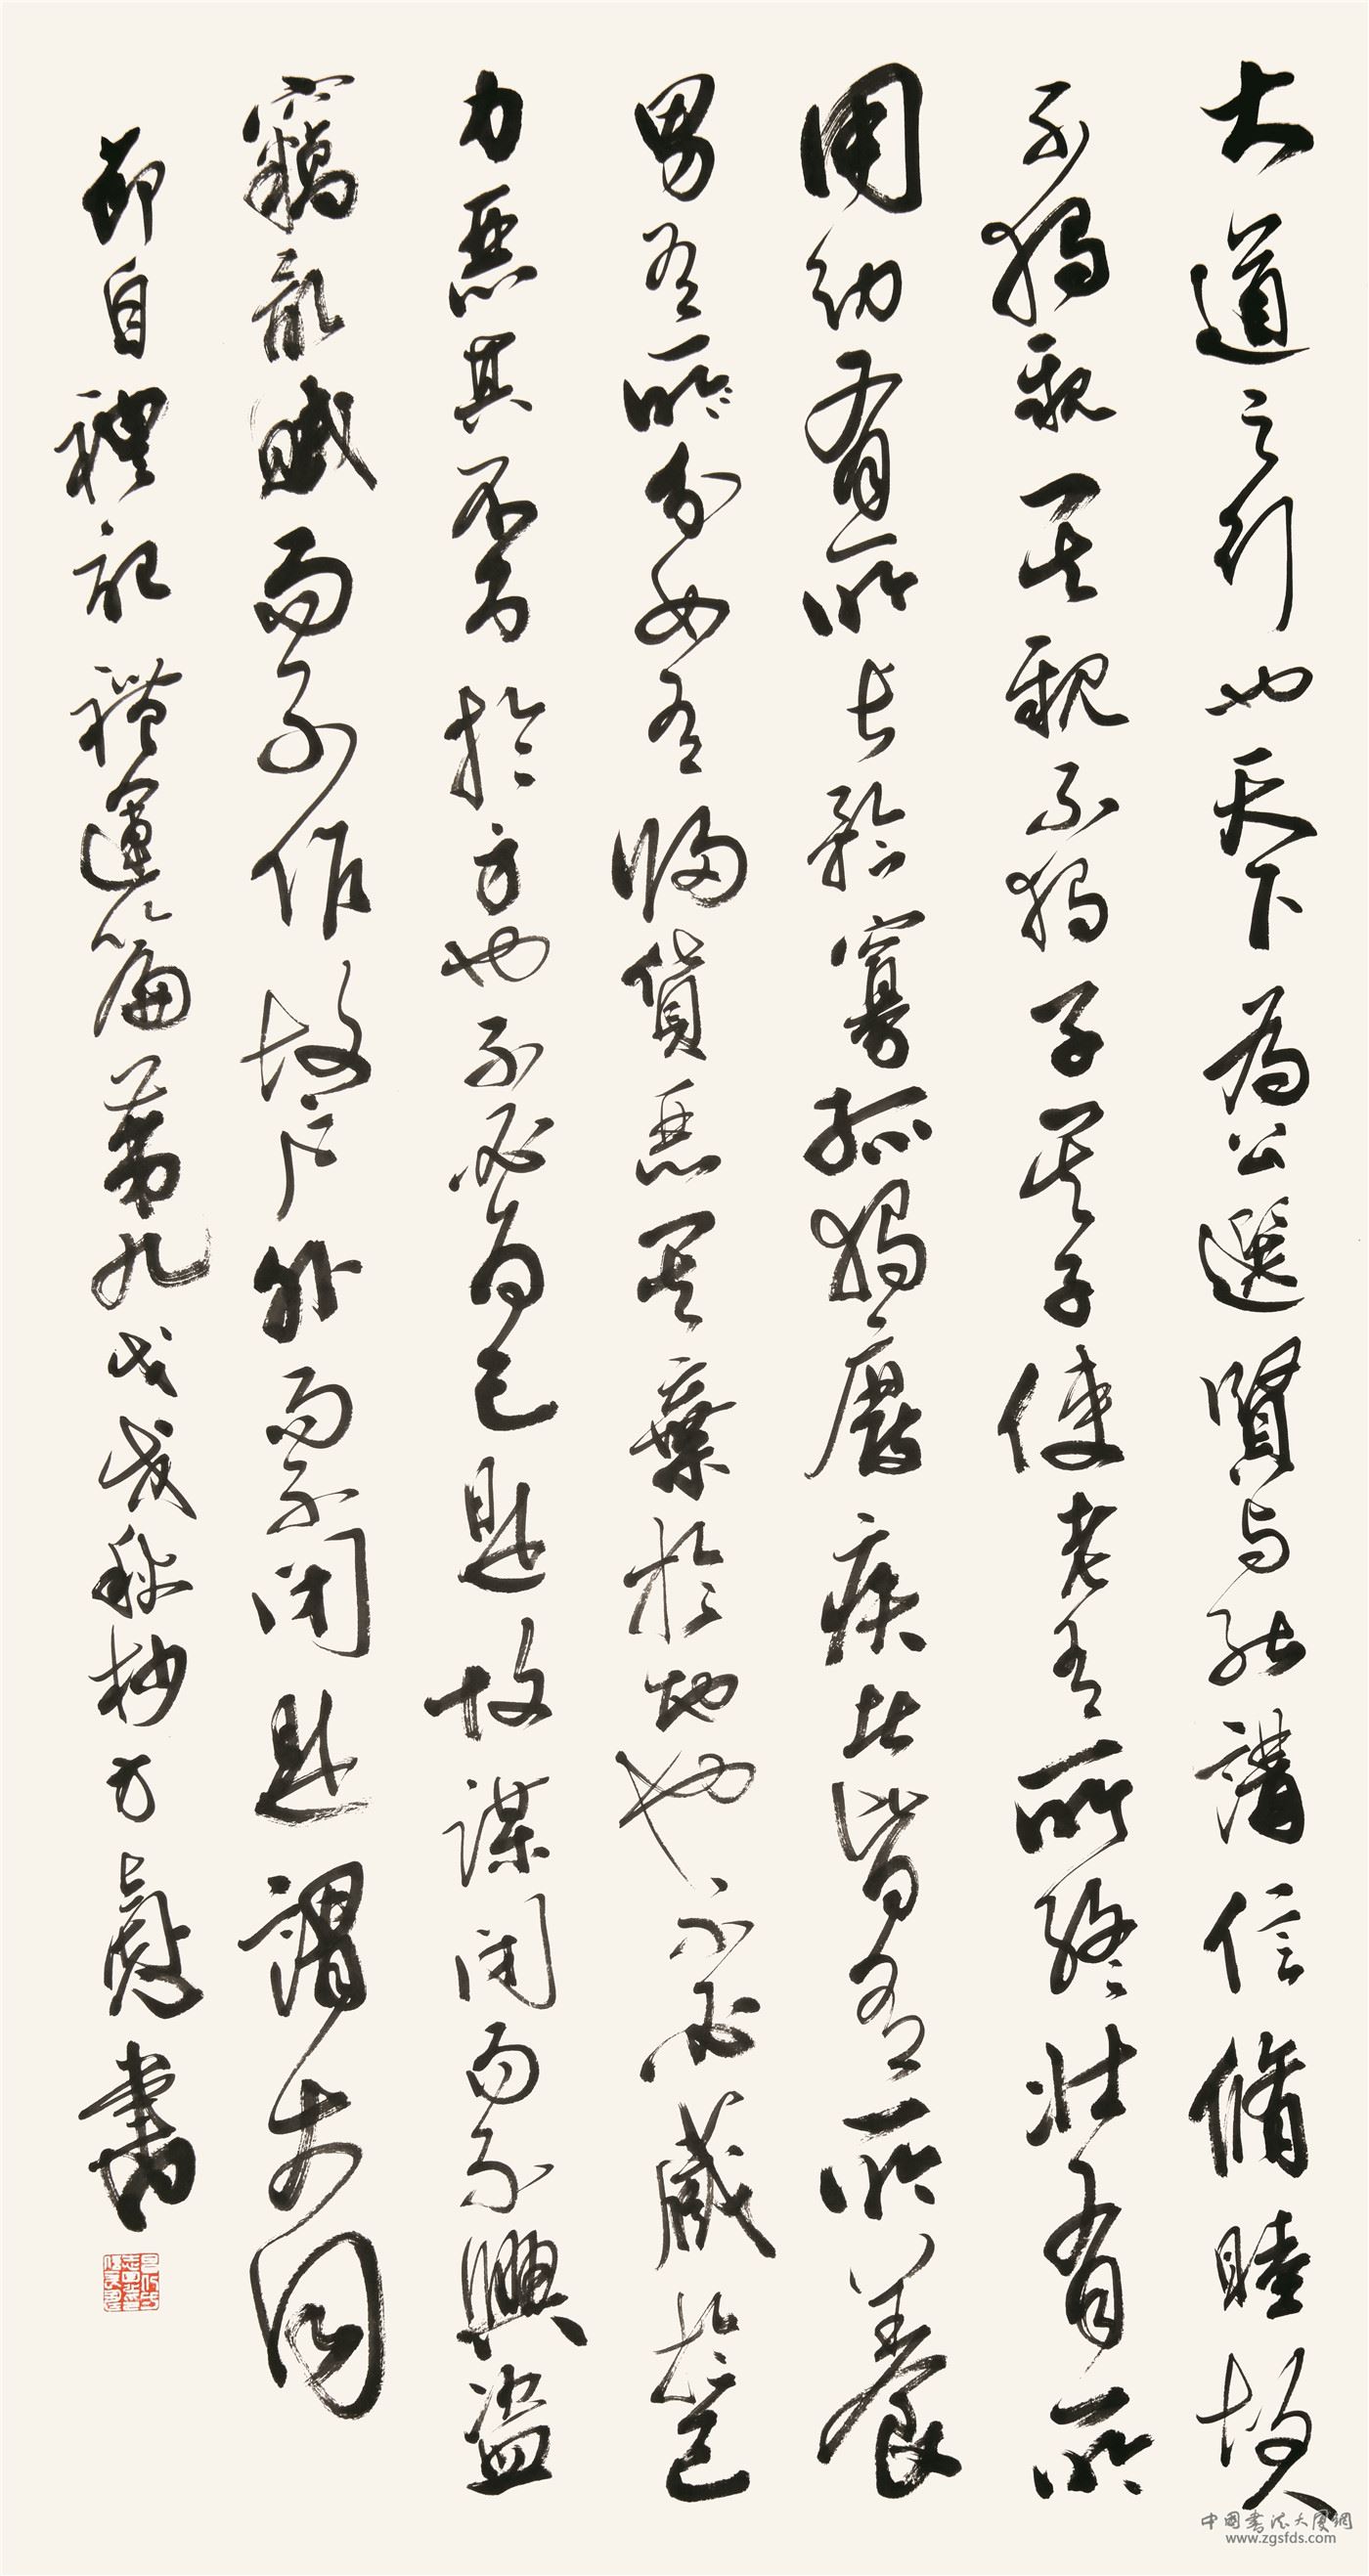 大道之行也天下為公選賢与能講信脩睦故人
不獨親其親不獨子其子使老有所終壯有所
用幼有所長矜寡孤獨廢疾者皆有所養
男有所分女有歸貨惡其棄於地也不必藏於己
力惡其不出於身也不必為己是故謀閉而不興盜
竊亂賊而不作故戶外而不閉是謂大同
節自禮記禮運篇第九戊戌秋杪方書
中國書法大厦網
www.zgsfds.com